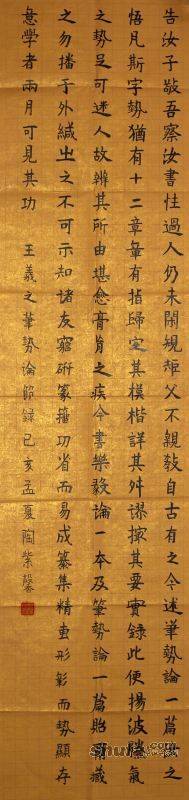 告汝子敬吾察汝書性過人仍未閑規矩父不親教自古有之今述筆勢論一篇之
悟凡斯字勢猶有十二章章有指歸定其模楷詳其舛謬撮其要實錄此便揚波騰氣
之勢足可迷人故辨其所由堪愈膏肓之疾今書樂毅論一本及筆勢論一篇貽爾藏
之勿播于外緘之不可示知諸友窮研篆籀功省而易成纂集精專形彰而勢顯存
意學者兩月可見其功 王羲之筆勢論節錄己亥孟夏陶紫馨